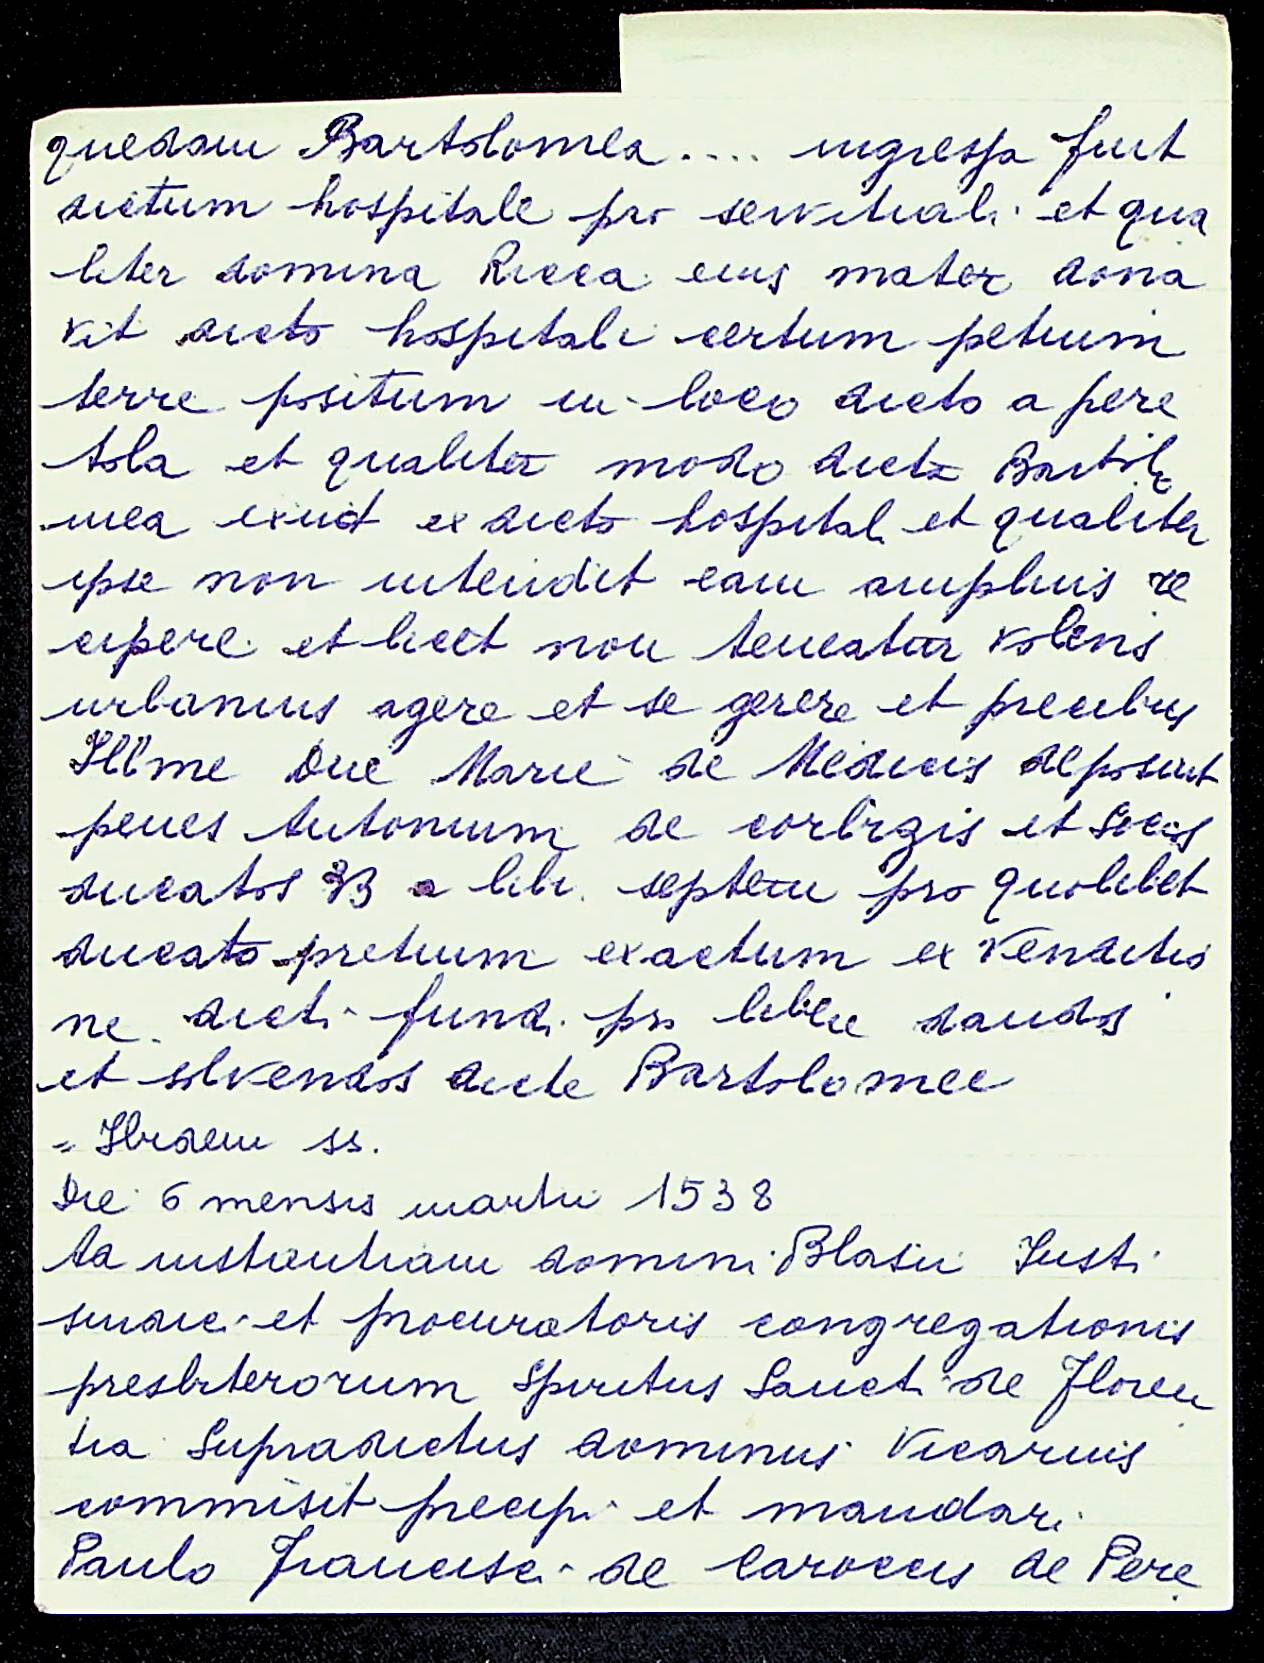 quedam Bartolomea .... ingressa fuit
dictum hospitale pro servitiali et qua
liter domina Ricca eius mater dona
vit dicto hospitali certum petium
terre positum in loco dicto a pere
tola et qualiter modo dicta Bartolo
mea exivit ex dicto hospitali et qualiter
ipse non intendit eam amplius re
cipere et licet non teneatur volens
urbanius agere et se gerere et precibus
Ill.me Dne Marie de Medicis deposuit
penes Antonium de corbizis et socios
ducatos 33 a libr. septem pro quolibet
ducato pretium exactum ex venditio
ne dicti fundi pro libere dandos
et solvendos dicte Bartolomee
= Ibidem ss.
Die 6 mensis martii 1538
Ad instantiam domini Blasii Iusti
sindici et procuratoris congregationis
presbiterorum Spiritus Sancti de Floren
tia Supradictus dominus Vicarius
commisit precipi et mandari
Paulo Francisci de Caroccis de Pere